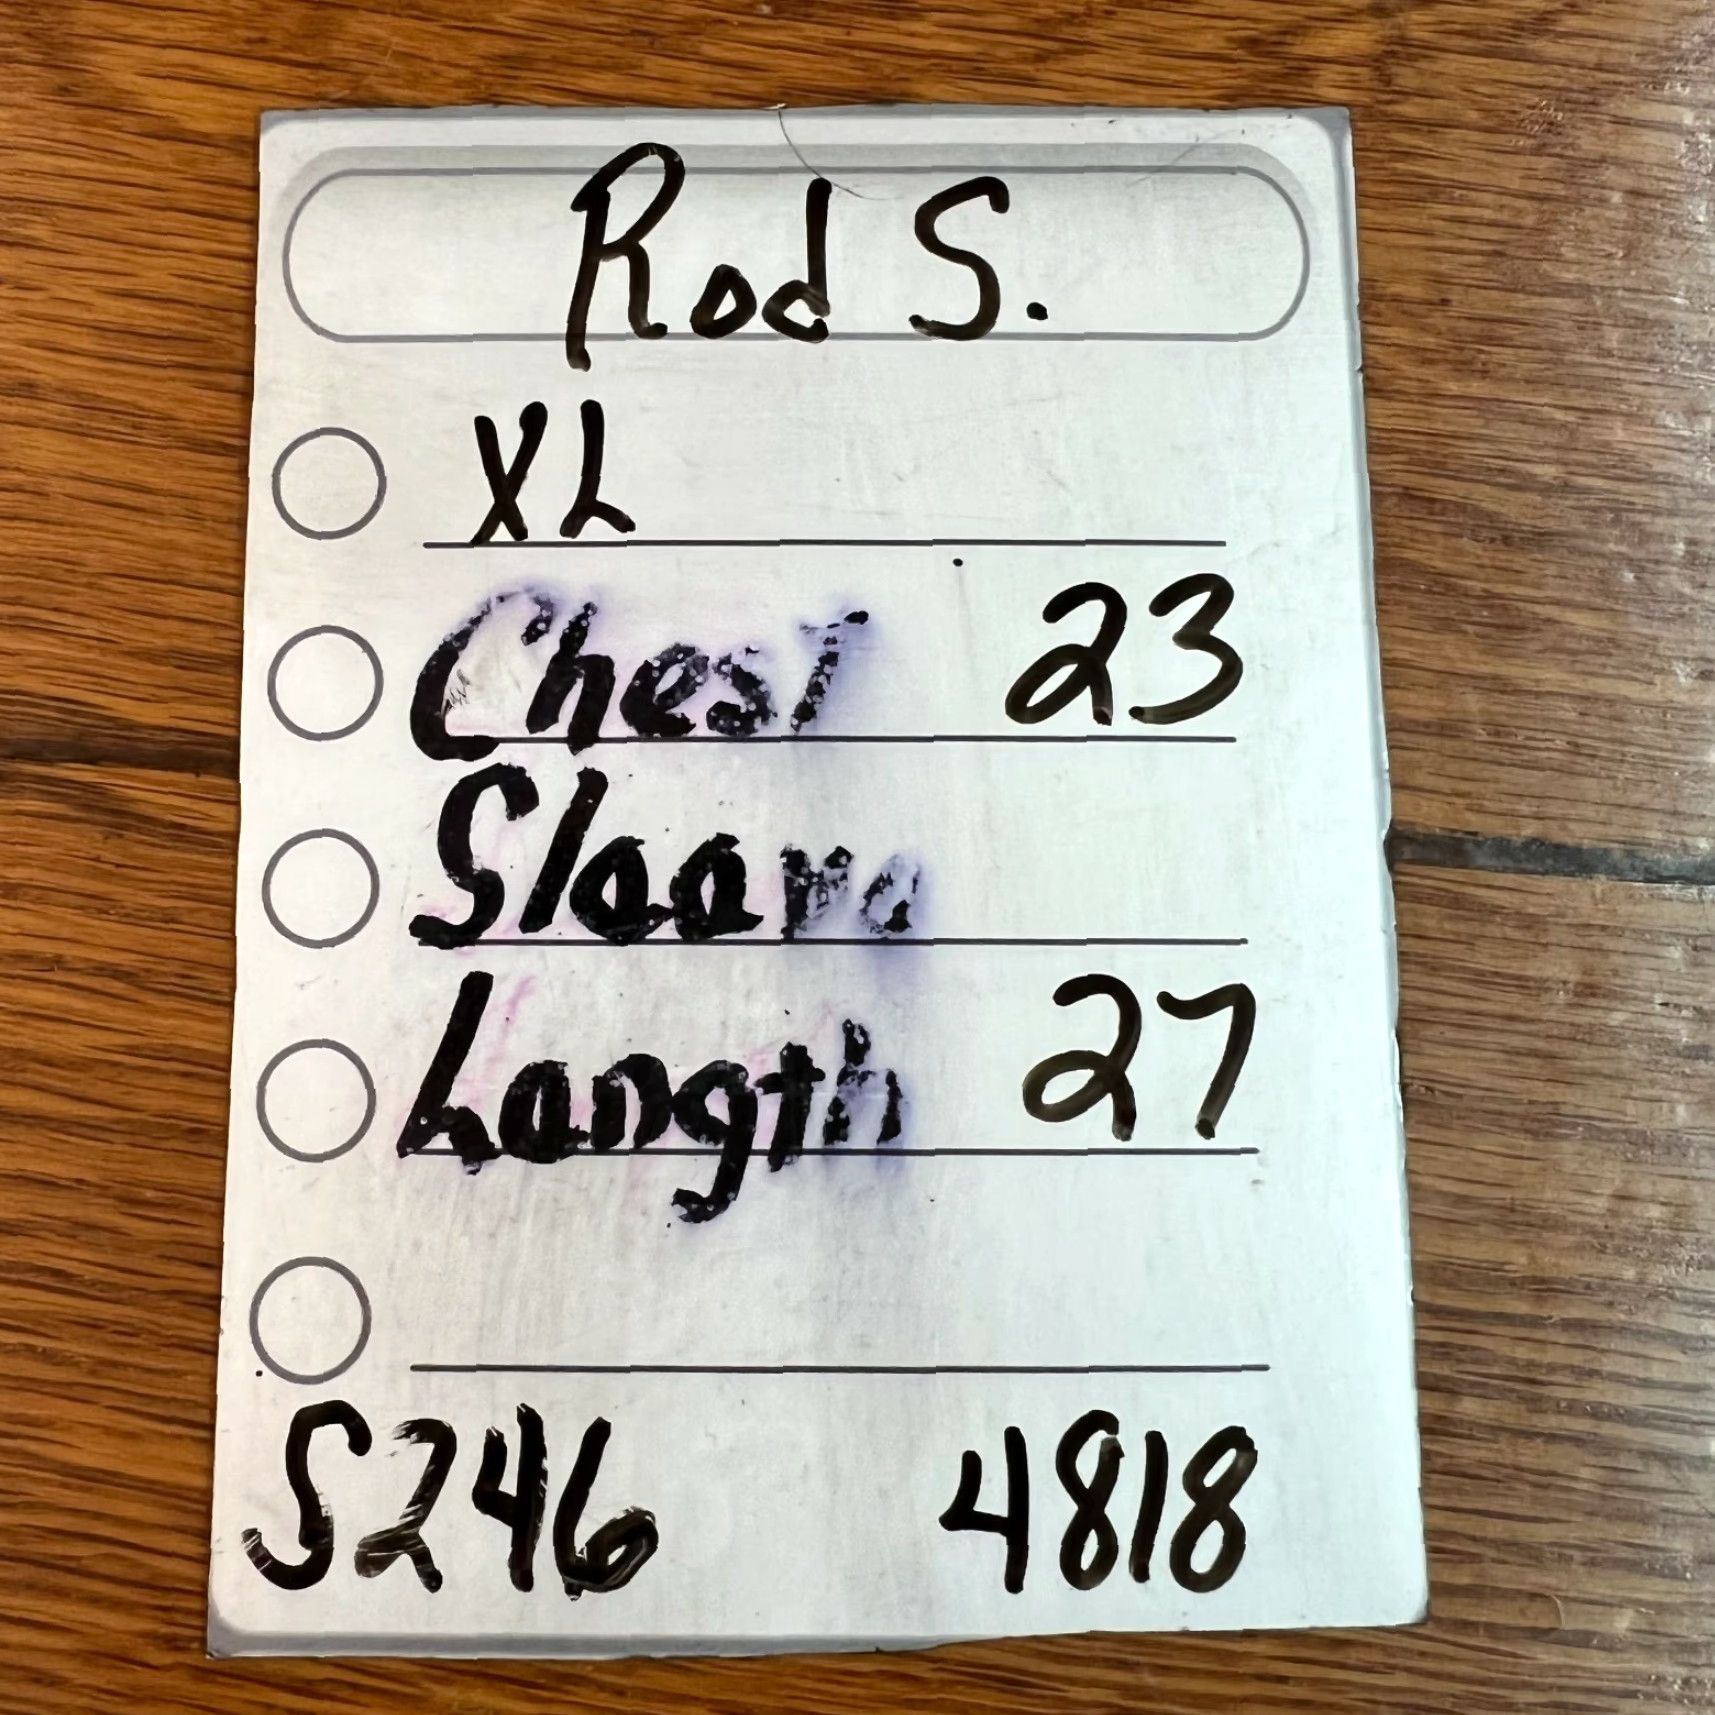 Rod S.
XL
Chest 23
Sleeve
Length 27
S246 4818